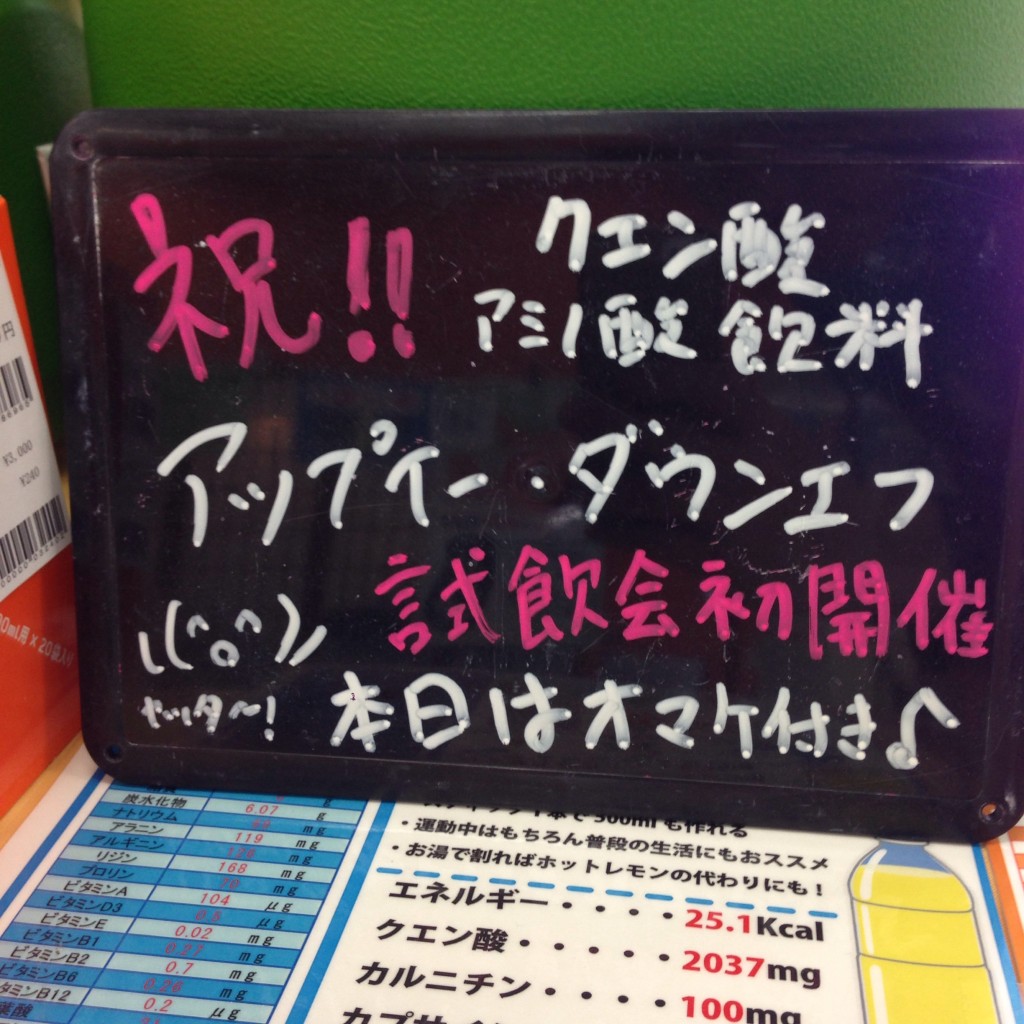 祝!!
クエン酸
アミノ酸 飲料
アップイー・ダウンエフ
試飲会初開催
\(^o^)/
ヤッター!
本日はオマケ付き♪
円
¥3,000
¥240
0ml用×20袋入り
炭水化物 6.07 g
ナトリウム
アラニン 119 mg
アルギニン
リジン 168 mg
プロリン
ビタミンA 104 μg
ビタミンD3 μg
ビタミンE 0.02 mg
ビタミンB1 mg
ビタミンB2 0.7 mg
ビタミンB6 mg
ビタミンB12 0.2 μg
葉酸
500mlも作れる
・運動中はもちろん普段の生活にもおススメ
・お湯で割ればホットレモンの代わりにも!
エネルギー・・・・25.1Kcal
クエン酸・・・・・2037mg
カルニチン・・・・100mg